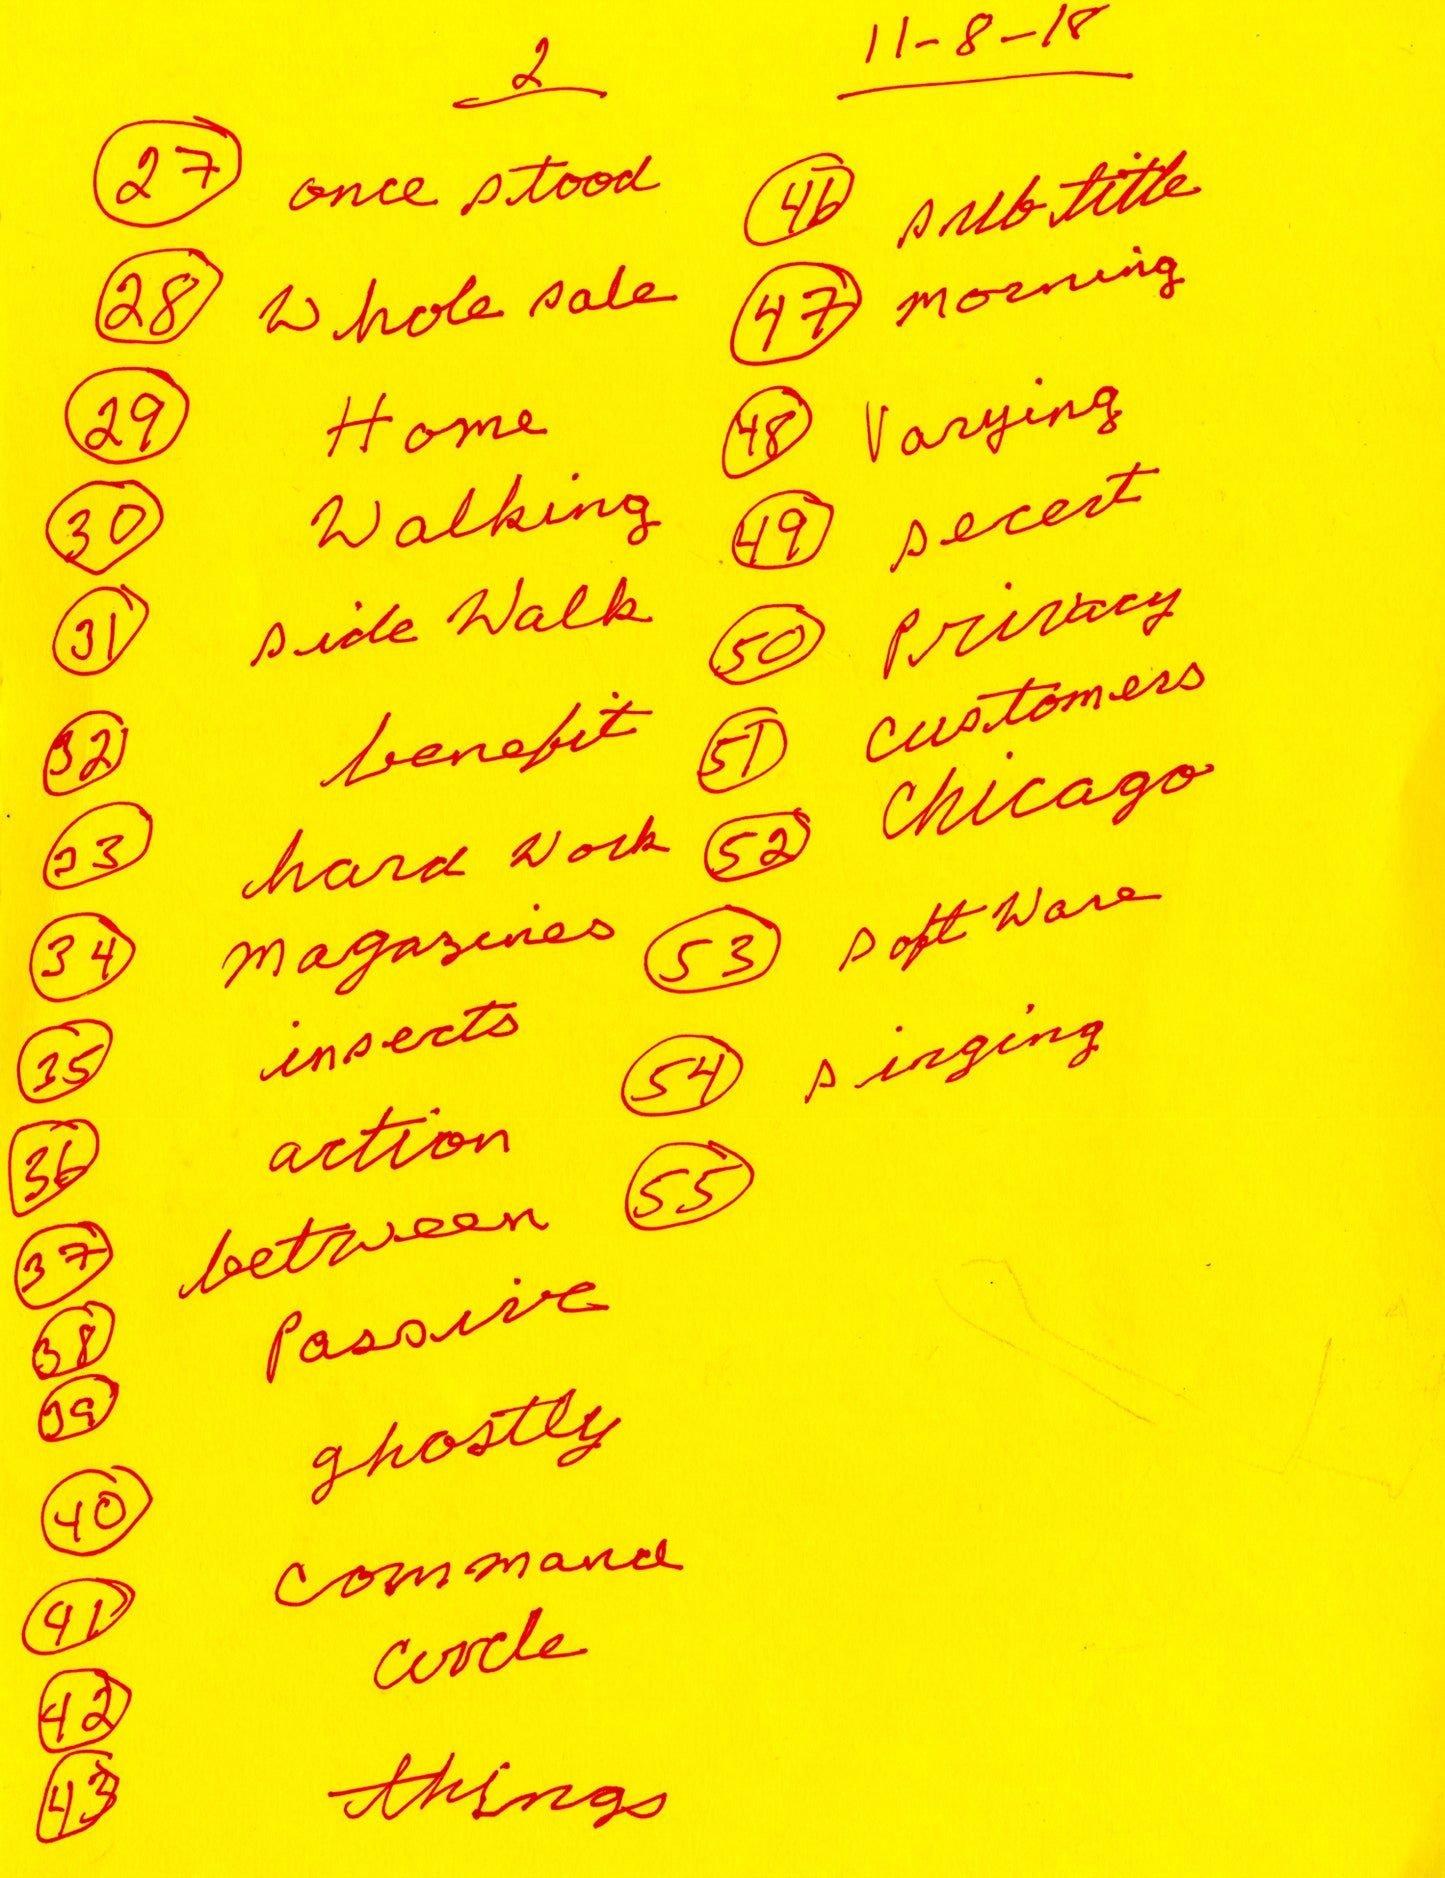 2
11-8-18
27 once stood
28 Whole sale
29 Home
30 Walking
31 side Walk
32 benefit
33 hard Work
34 magazines
35 insects
36 action
37 between
38 Passive
39 ghostly
40
41 command
42 circle
43 things
46 subtitle
47 morning
48 Varying
49 secert
50 Privacy
51 customers
52 Chicago
53 soft Ware
54 singing
55